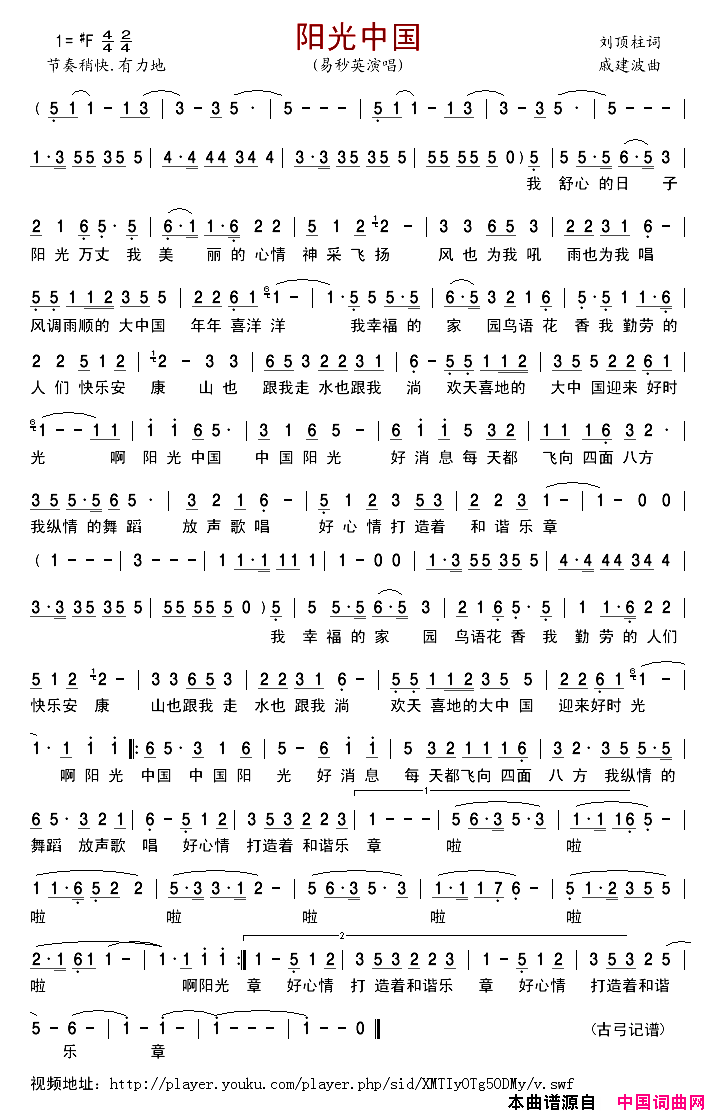 阳光中国
1=♯F 4/4 2/4
刘顶柱词
节奏稍快.有力地
(易秒英演唱)
戚建波曲
(5 1 1 - 1 3 | 3 - 3 5 · | 5 - - - | 5 - - - |
1·3 55 35 5 | 4·4 44 34 4 | 3·3 55 35 5 | 55 55 5 0) 5 | 5 5·5 6·5 3 |
我 舒心 的日 子
2 1 6 5· 5 | 6·1 1·6 2 2 | 5 1 2 2 - | 3 3 6 5 3 | 2 2 3 1 6 - |
阳 光 万丈 我 美 丽 的 心情 神 采 飞 扬 风 也 为我 吼 雨也 为我 唱
5 5 1 1 2 3 5 5 | 2 2 6 1 1 - | 1· 5 5 5·5 | 6·5 3 2 1 6 | 5 5 1 1·6 |
风调雨顺的 大中国 年年 喜洋 洋 我幸福 的 家 园鸟语 花 香 我 勤劳 的
2 2 5 1 2 | 2 - 3 3 | 6 5 3 2 2 3 1 | 6 - 5 5 1 1 2 | 3 5 5 2 2 6 1 |
人 们 快乐安 康 山 也 跟我走 水也跟我 淌 欢天喜地的 大中 国迎来 好时
1 - - 1 1 | i i 6 5· | 3 1 6 5· | 6 i i 5 3 2 | 1 1 1 6 3 2· |
光 啊 阳光 中国 中 国 阳光 好 消 息 每 天都 飞向 四面 八方
3 5 5·5 6 5· | 3 2 1 6 - | 5 1 2 3 5 3 | 2 2 3 1 - | 1 - 0 0 |
我纵情 的舞 蹈 放 声 歌 唱 好 心 情 打 造着 和 谐 乐 章
(1 - - - | 3 - - - | 1 1·1 1 1 1 1 | 1 - 0 0 | 1·3 55 35 5 | 4·4 44 34 4 |
3·3 55 35 5 | 55 55 5 0) 5 | 5 5·5 6·5 3 | 2 1 6 5· 5 | 1 1·6 2 2 |
我 幸 福 的 家 园 鸟语花 香 我 勤 劳 的 人们
5 1 2 2 - | 3 3 6 5 3 | 2 2 3 1 6 - | 5 5 1 1 2 3 5 5 | 2 2 6 1 1 - |
快乐安 康 山也跟我 走 水 也跟我 淌 欢天 喜地的大中 国 迎来好时 光
1· 1 i i ‖: 6 5· 3 1 6 | 5· 6 i i | 5 3 2 1 1 1 6 | 3 2· 3 5 5 5·5 |
啊阳 光 中国 中 国阳 光 好 消 息 每 天都飞向 四面 八 方 我纵情 的
1
6 5· 3 2 1 | 6 - 5 1 2 | 3 5 3 2 2 3 | 1 - - - | 5 6·3 5·3 | 1·1 1 6 5 - |
舞蹈 放声歌 唱 好心情 打造着 和谐乐 章 啦 啦
1 1·6 5 2 2 | 5·3 3·1 2 - | 2 3·6 5 3· | 1·1 1 7 6 - | 5 5·3 5 - |
啦 啦 啦 啦 啦
2
2·1 6 1 1 - | 1·1 i i :‖ 1 - 5 1 2 | 3 5 3 2 2 3 | 1 - 5 1 2 | 3 5 3 2 3 |
啦 啊阳光 章 好心情 打 造着和谐乐 章 好心情 打造着和谐
5 - 6 - | 1 - 1 - | 1 - - - | 1 0 0 ‖
(古弓记谱)
乐 章
视频地址：http://player.youku.com/player.php/sid/XMTIyOTg5ODMy/v.swf
本曲谱源自 中国词曲网